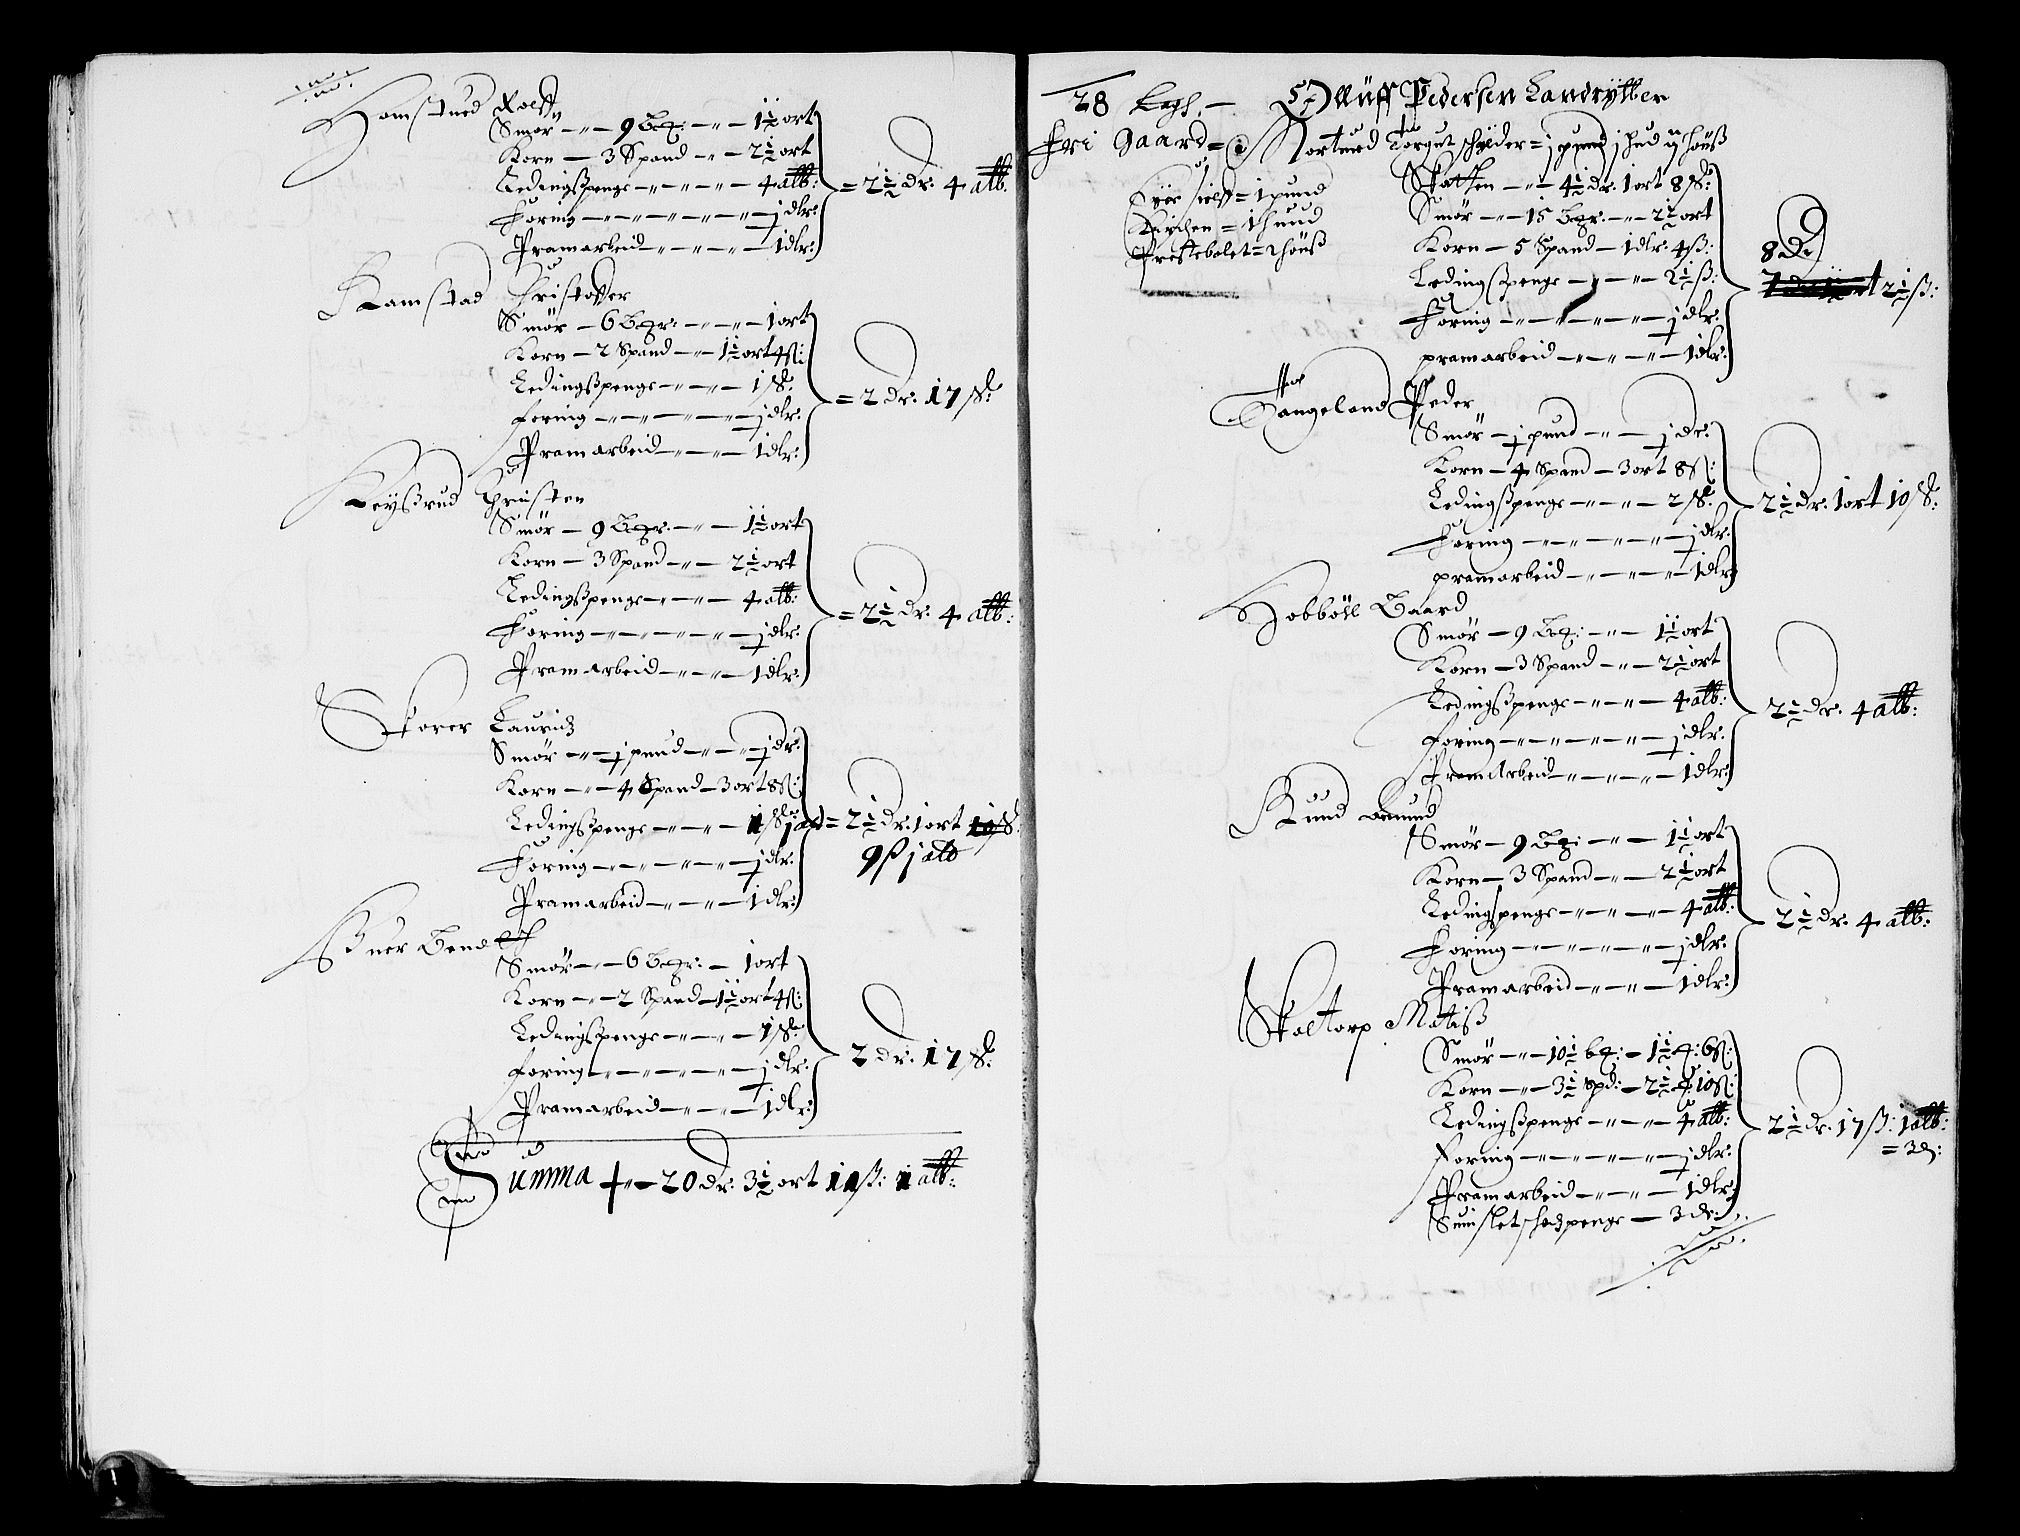 Hamstued Roeff
Smør – 9 Bgr: – 1½ ort
Korn – 3 Spand – 2½ ort
Ledingsspenge – 4 alb:
Foring – j dlr:
Pramarbeid – 1 dlr:
= 2½ dr: 4 alb:
Ramstad Christoffer
Smør – 6 Bgr: – 1 ort
Korn – 2 Spand – 1½ ort 4 ß:
Ledingsspenge – 1 ß:
Foring – j dlr:
Pramarbeid – 1 dlr:
= 2 dr: 17 ß:
Keyßrud Christen
Smør – 9 Bgr: – 1½ ort
Korn – 3 Spand – 2½ ort
Ledingsspenge – 4 alb:
Foring – j dlr:
Pramarbeid – 1 dlr:
= 2½ dr: 4 alb:
Skorer Lauridz
Smør – j pund – j dr:
Korn – 4 Spand – 3 ort 8 ß:
Ledingsspenge – 1 ß j alb
Foring – j dlr:
Pramarbeid – 1 dlr:
= 2½ dr: 1 ort 10 ß:
9 ß j alb
Smør – 6 Bgr: – 1 ort
Korn – 2 Spand – 1½ ort 4 ß:
Ledingsspenge – 1 ß:
Foring – j dlr:
Pramarbeid – 1 dlr:
2 dr: 17 ß:
Summa – 20 dr: 3½ ort 11 ß: 1 alb:
28 Legh. – Olluff Pedersen Landrytter
Fri Gaard = 1 Nortued Torgut schylder = j pund j hud 2 houß
Syer sielff = 1 pund
Kirchen = 1 huud
Prestebolet = 2 houß
Skatten – 4½ dr: 1 ort 8 ß:
Smør – 15 Bgr: – 2½ ort
Korn – 5 Spand – 1 dlr: 4 ß:
Ledingsspenge – 2½ ß:
Foring – j dlr:
pramarbeid – 1 dlr:
8 Dr
2½ ß:
Tangeland Peder
Smør – j pund – j dr:
Korn – 4 Spand – 3 ort 8 ß:
Ledingsspenge – 2 ß:
Foring – j dlr:
pramarbeid – 1 dlr:
2½ dr: 1 ort 10 ß:
Hobbøll Gaard
Smør – 9 Bg: – 1½ ort
Korn – 3 Spand – 2½ ort
Ledingsspenge – 4 alb:
Foring – j dlr:
Pramarbeid – 1 dlr:
2½ dr: 4 alb:
Ruud Omund
Smør – 9 Bg: – 1½ ort
Korn – 3 Spand – 2½ ort
Ledingspenge – 4 alb:
Foring – j dlr:
Pramarbeid – 1 dlr:
2½ dr: 4 alb:
Skoltorp Matiß
Smør – 10½ bg: – 1½ q: 6 ß:
Korn – 3½ Spd: – 2½ q: 10 ß:
Ledingsspenge – 4 alb:
Foring – j dlr:
Pramarbeid – 1 dlr:
2½ dr: 17 ß: 1 alb:
= 3 d: